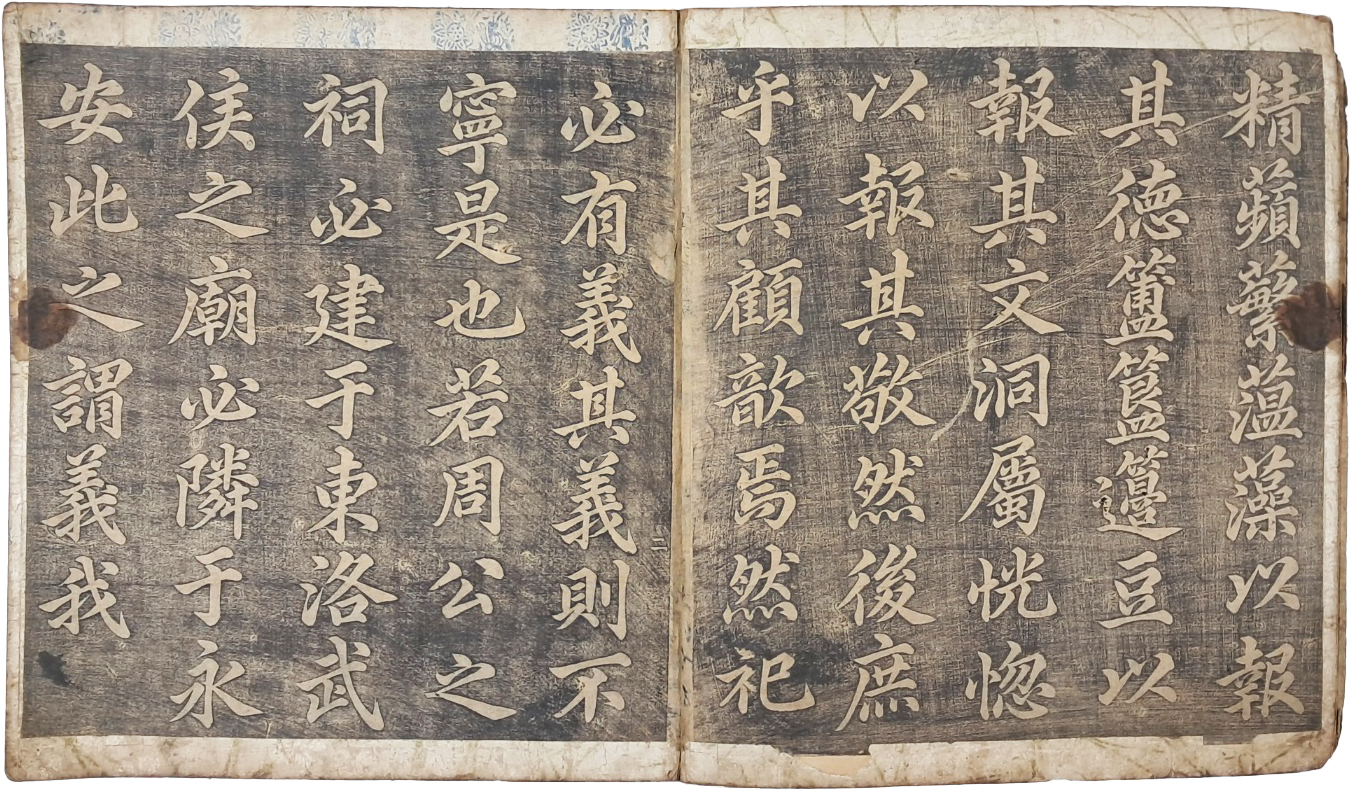 精蘋蘩薀藻以報
其德簠簋籩豆以
報其文洞屬恍惚
以報其敬然後庶
乎其顧歆焉然祀
必有義其義則不
寧是也若周公之
祠必建于東洛武
侯之廟必隣于永
安此之謂義我
二